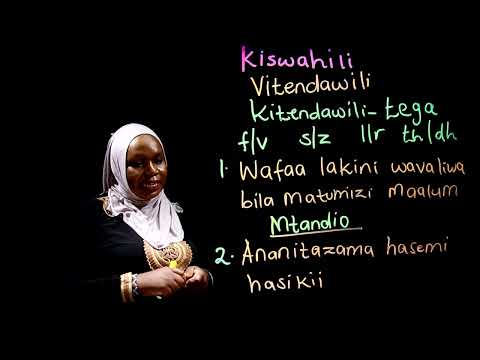 Kiswahili
Vitendawili
Kitendawili - tega
f/v s/z l/r th/dh
1. Wafaa lakini wavaliwa
bila matumizi maalum
Mtandio
2. Ananitazama hasemi
hasikii